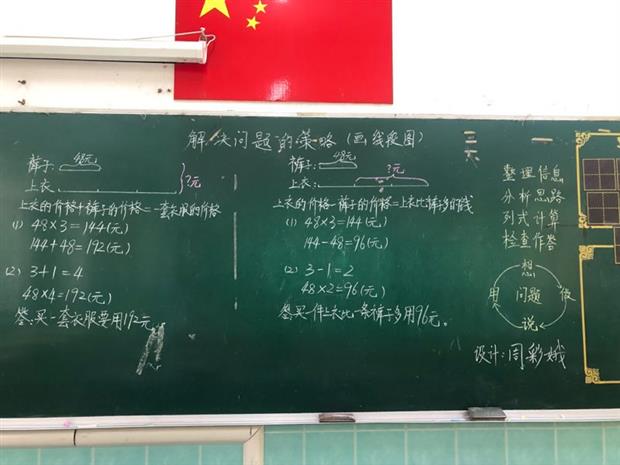 解决问题的策略（画线段图）
三 一
六
48元
裤子:
上衣: ?元
上衣的价格+裤子的价格=一套衣服的价格
(1) 48×3=144(元)
144+48=192(元)
(2) 3+1=4
48×4=192(元)
答:买一套衣服要用192元。
48元
裤子:
?元
上衣:
上衣的价格-裤子的价格=上衣比裤子多的钱
(1) 48×3=144(元)
144-48=96(元)
(2) 3-1=2
48×2=96(元)
答:买一件上衣比一条裤子多用96元。
整理信息
分析思路
列式计算
检查作答
想
用 问题 做
说
设计:周彩娥